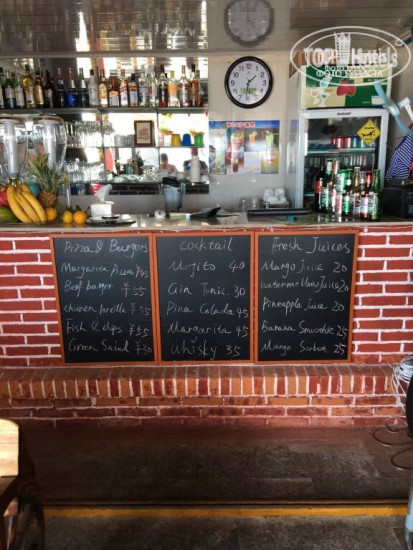 TOP Hotels
Pizza & Burgers
Margarita Pizza ¥45
Beef burger ¥55
chicken tortilla ¥50
Fish & chips ¥55
Green Salad ¥30
Cocktail
Mojito 40
Gin Tonic 30
Pina Colada 45
Margarita 45
Whisky 35
Fresh Juices
Mango Juice 20
watermelon Juice 20
Pineapple Juice 20
Banana Smoothie 25
Mango Sorbee 25